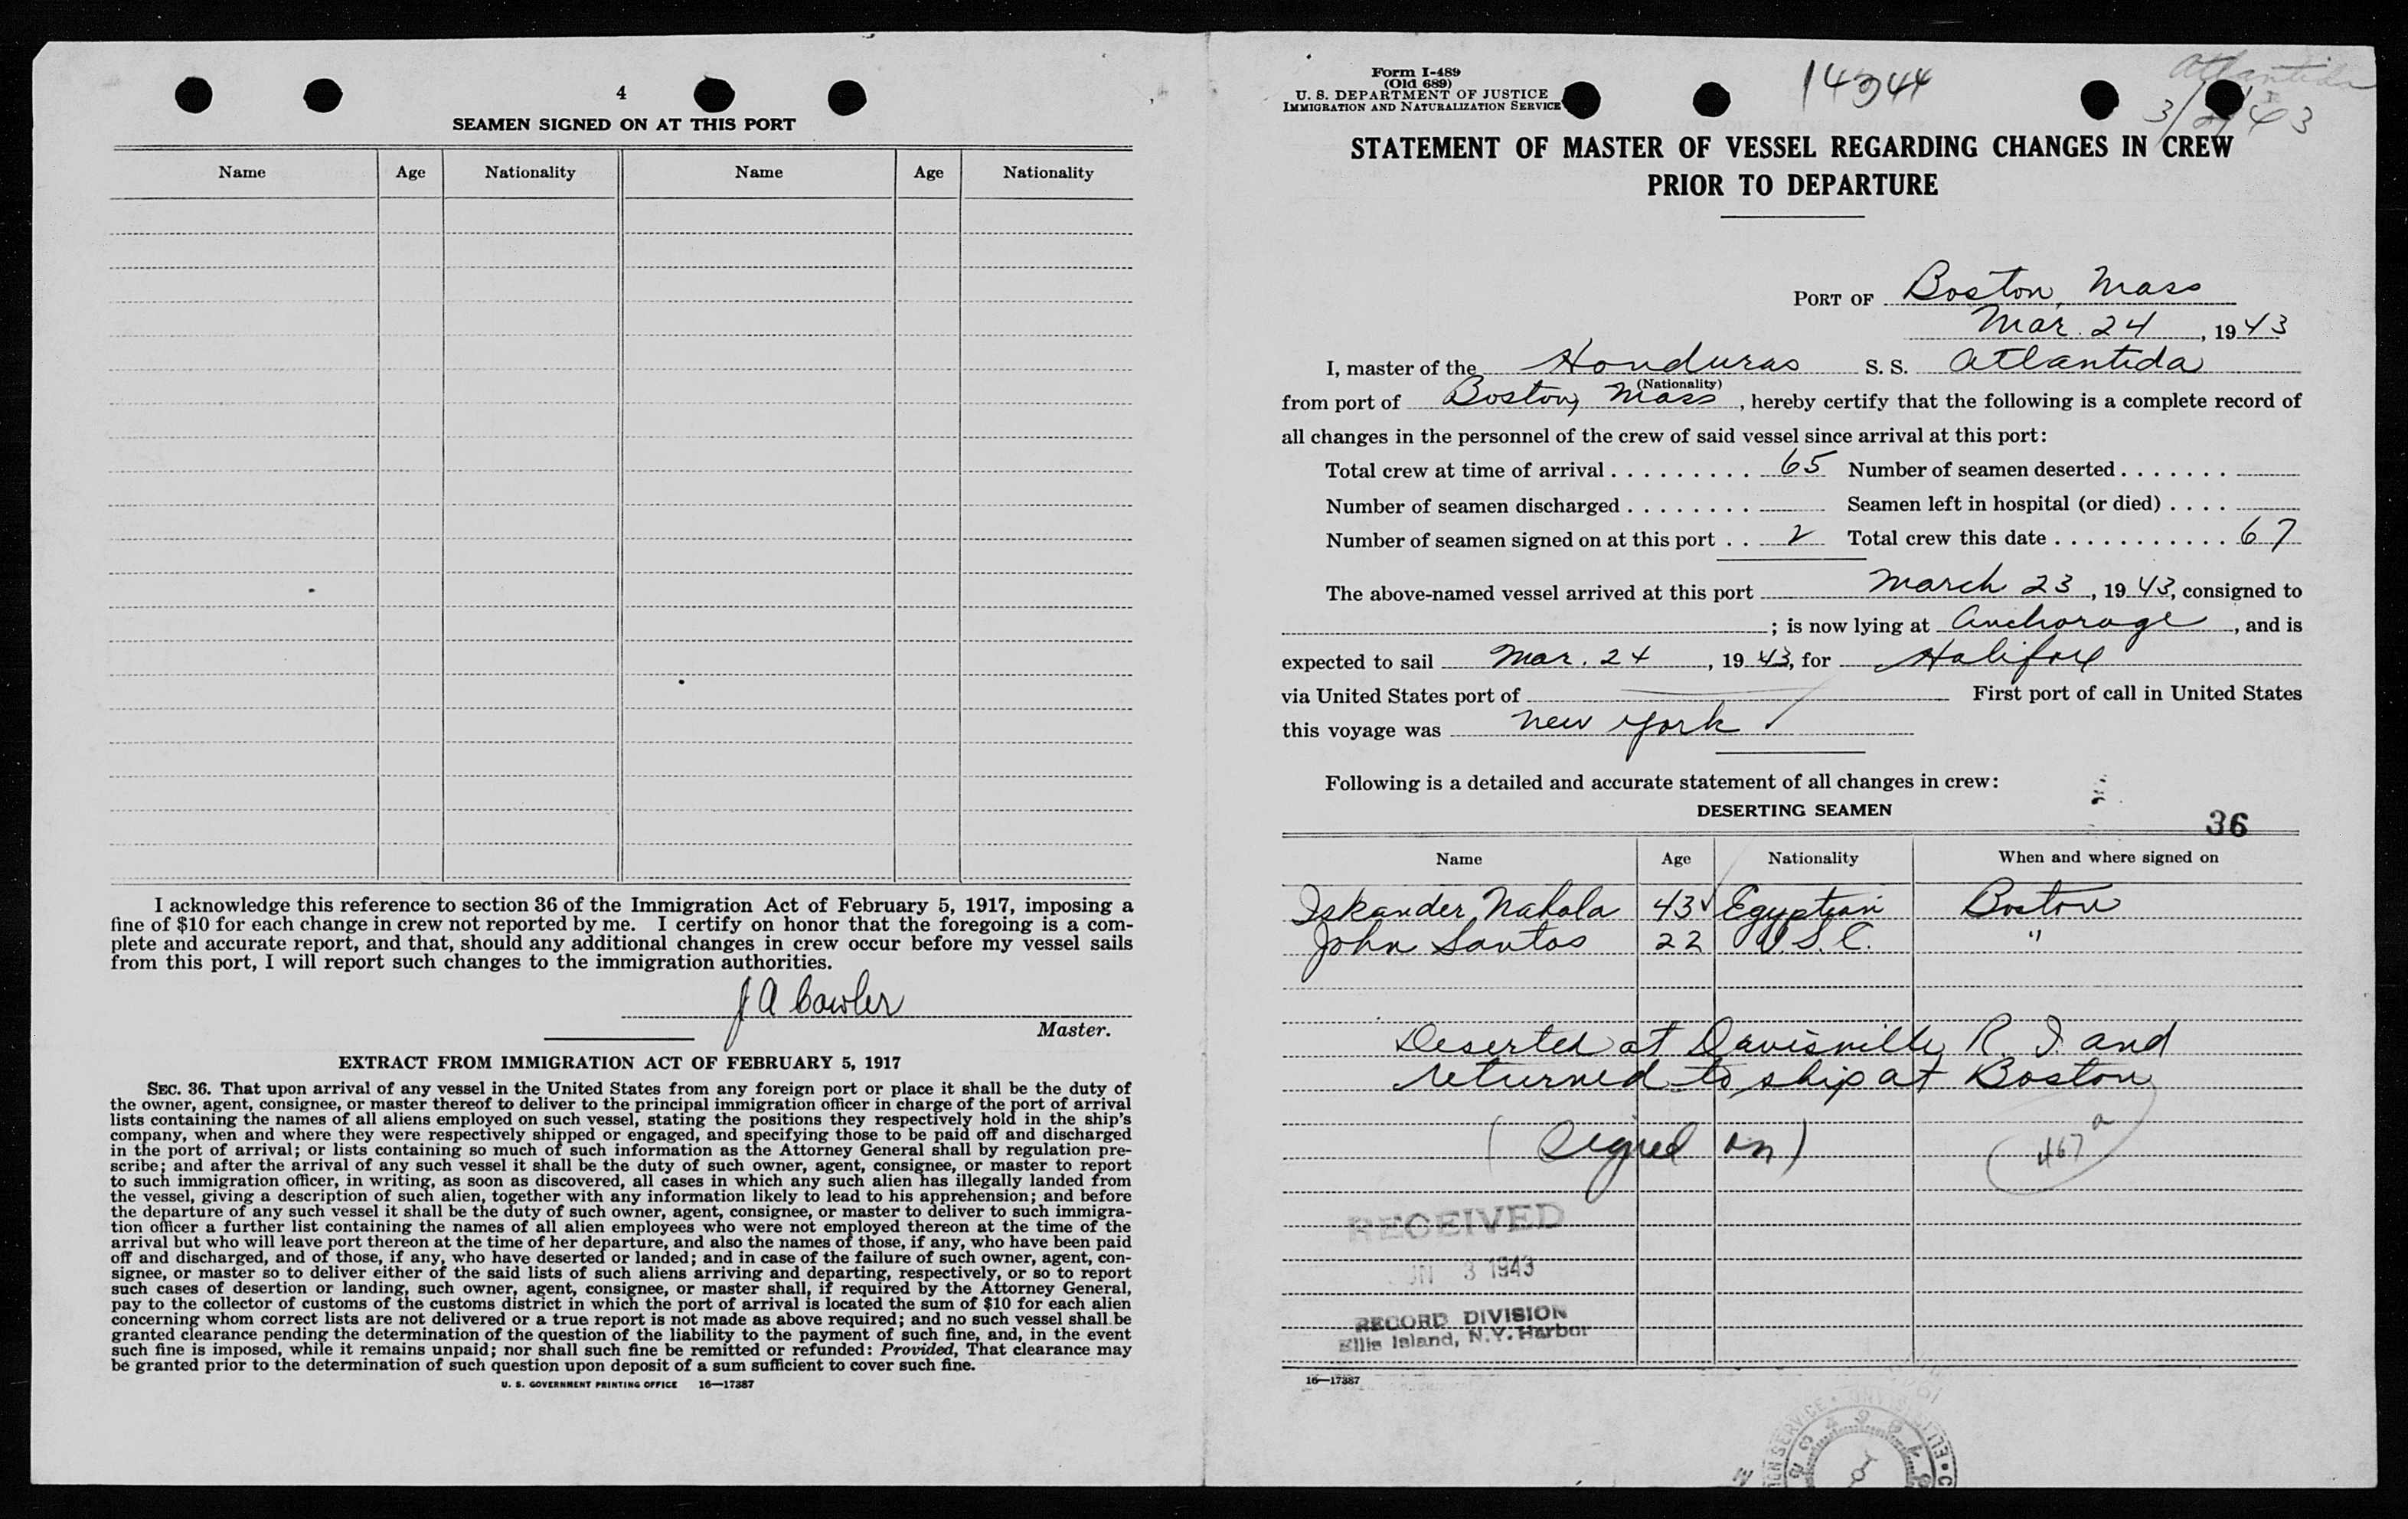 4
SEAMEN SIGNED ON AT THIS PORT
Name Age Nationality Name Age Nationality
I acknowledge this reference to section 36 of the Immigration Act of February 5, 1917, imposing a
fine of $10 for each change in crew not reported by me. I certify on honor that the foregoing is a com-
plete and accurate report, and that, should any additional changes in crew occur before my vessel sails
from this port, I will report such changes to the immigration authorities.
J A Cawler
Master.
EXTRACT FROM IMMIGRATION ACT OF FEBRUARY 5, 1917
SEC. 36. That upon arrival of any vessel in the United States from any foreign port or place it shall be the duty of
the owner, agent, consignee, or master thereof to deliver to the principal immigration officer in charge of the port of arrival
lists containing the names of all aliens employed on such vessel, stating the positions they respectively hold in the ship's
company, when and where they were respectively shipped or engaged, and specifying those to be paid off and discharged
in the port of arrival; or lists containing so much of such information as the Attorney General shall by regulation pre-
scribe; and after the arrival of any such vessel it shall be the duty of such owner, agent, consignee, or master to report
to such immigration officer, in writing, as soon as discovered, all cases in which any such alien has illegally landed from
the vessel, giving a description of such alien, together with any information likely to lead to his apprehension; and before
the departure of any such vessel it shall be the duty of such owner, agent, consignee, or master to deliver to such immigra-
tion officer a further list containing the names of all alien employees who were not employed thereon at the time of the
arrival but who will leave port thereon at the time of her departure, and also the names of those, if any, who have been paid
off and discharged, and of those, if any, who have deserted or landed; and in case of the failure of such owner, agent, con-
signee, or master so to deliver either of the said lists of such aliens arriving and departing, respectively, or so to report
such cases of desertion or landing, such owner, agent, consignee, or master shall, if required by the Attorney General,
pay to the collector of customs of the customs district in which the port of arrival is located the sum of $10 for each alien
concerning whom correct lists are not delivered or a true report is not made as above required; and no such vessel shall be
granted clearance pending the determination of the question of the liability to the payment of such fine, and, in the event
such fine is imposed, while it remains unpaid; nor shall such fine be remitted or refunded: Provided, That clearance may
be granted prior to the determination of such question upon deposit of a sum sufficient to cover such fine.
U. S. GOVERNMENT PRINTING OFFICE 16—17387
Form I-489
(Old 689)
U. S. DEPARTMENT OF JUSTICE
IMMIGRATION AND NATURALIZATION SERVICE
Atlantida
STATEMENT OF MASTER OF VESSEL REGARDING CHANGES IN CREW
PRIOR TO DEPARTURE
PORT OF Boston, Mass
Mar. 24, 1943
I, master of the Honduras S. S. Atlantida
(Nationality)
from port of Boston, Mass, hereby certify that the following is a complete record of
all changes in the personnel of the crew of said vessel since arrival at this port:
Total crew at time of arrival . . . . . . . . . 65 Number of seamen deserted . . . . . . .
Number of seamen discharged . . . . . . . . Seamen left in hospital (or died) . . . .
Number of seamen signed on at this port . . 2 Total crew this date . . . . . . . . . . . 67
The above-named vessel arrived at this port March 23, 1943, consigned to
; is now lying at Anchorage, and is
expected to sail Mar. 24, 1943, for Halifax
via United States port of First port of call in United States
this voyage was New York
Following is a detailed and accurate statement of all changes in crew:
DESERTING SEAMEN
36
Name Age Nationality When and where signed on
Iskander Nahola 43 Egyptian Boston
John Santos 22 U.S.C. "
Deserted at Davisville, R I. and
returned to ship at Boston
(Signed on)
467 a
RECEIVED
3 1943
RECORD DIVISION
Ellis Island, N.Y. Harbor
16—17387